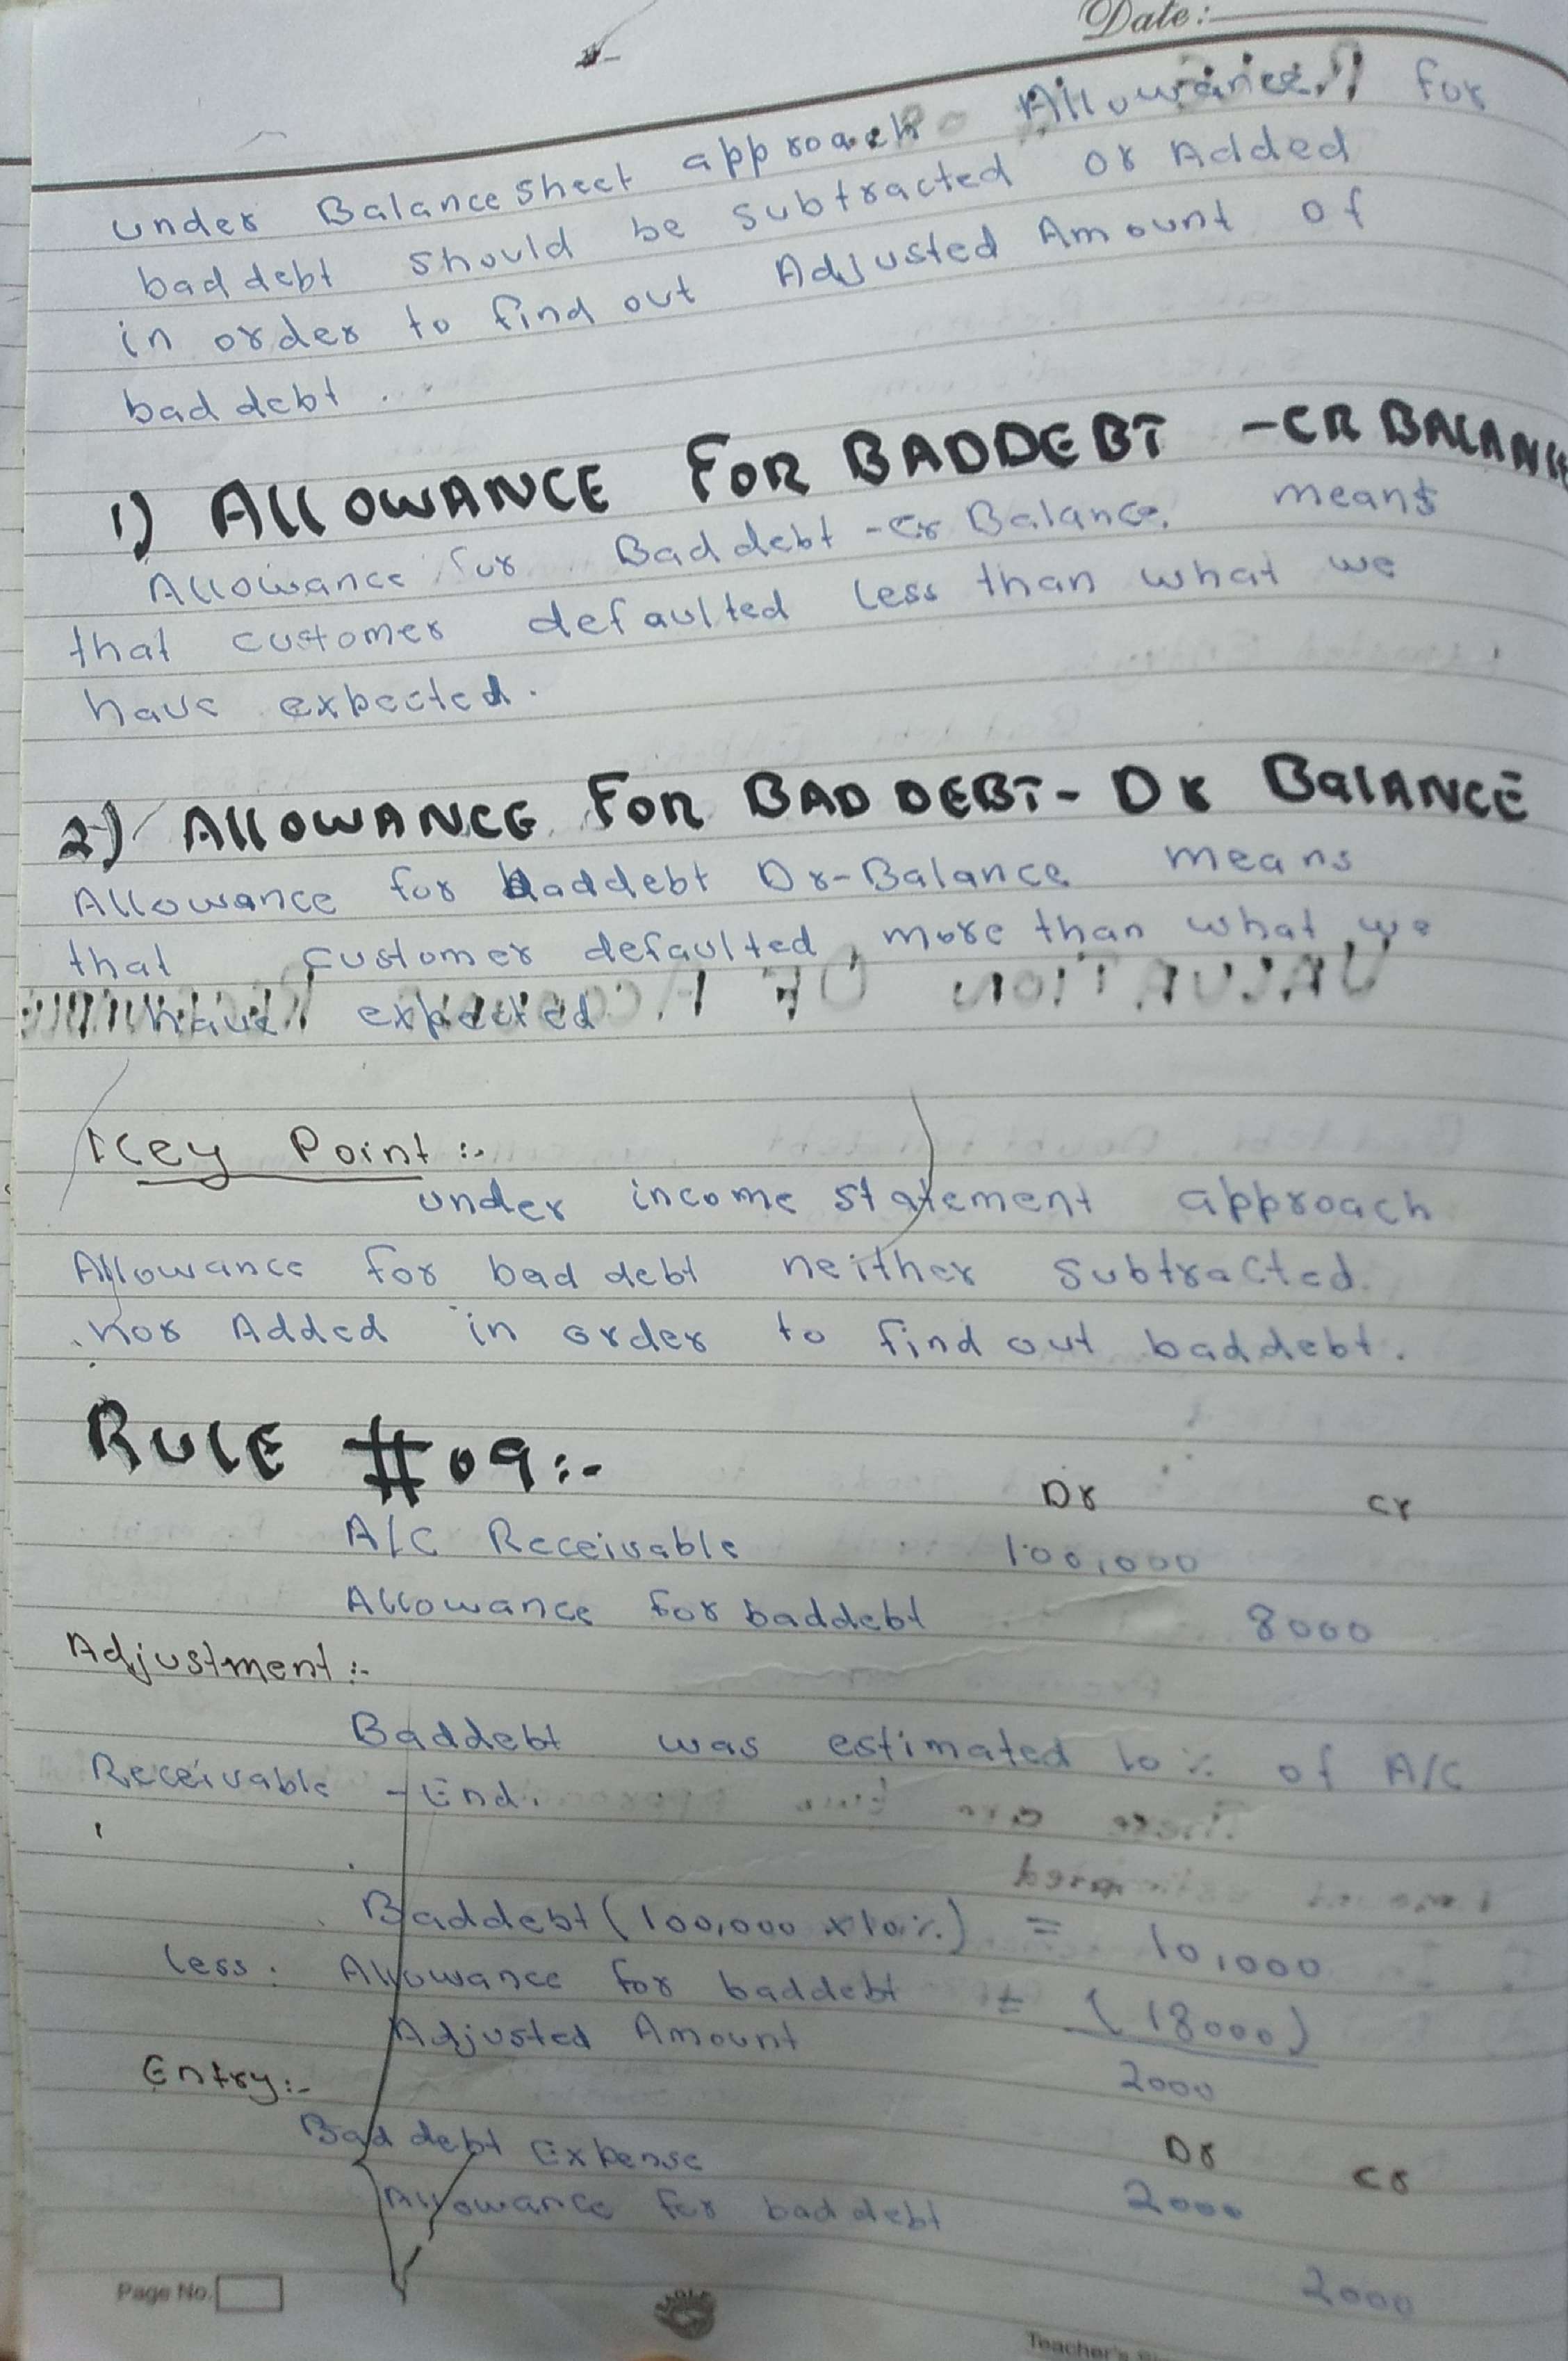 Date:
under Balance sheet approach Allowance for
bad debt should be subtracted or Added
in order to find out Adjusted Amount of
bad debt.
1) ALLOWANCE FOR BADDEBT -CR BALANCE
Allowance for Bad debt -Cr Balance means
that customer defaulted less than what we
have expected.
2) ALLOWANCE FOR BAD DEBT- Dr BalANCE
Allowance for baddebt Dr-Balance means
that customer defaulted, more than what we
have expected
Key Point :-
under income statement approach
Allowance for bad debt neither subtracted
nor Added in order to find out baddebt.
RULE #09:-
Dr Cr
A/C Receivable 100,000
Allowance for baddebt 8000
Adjustment :-
Baddebt was estimated 10% of A/C
Receivable -End.
Baddebt (100,000 x 10%) = 10,000
less: Allowance for baddebt = (18000)
Adjusted Amount 2000
Entry:-
Dr Cr
Bad debt Expense 2000
Allowance for bad debt 2000
Page No.
Teacher's